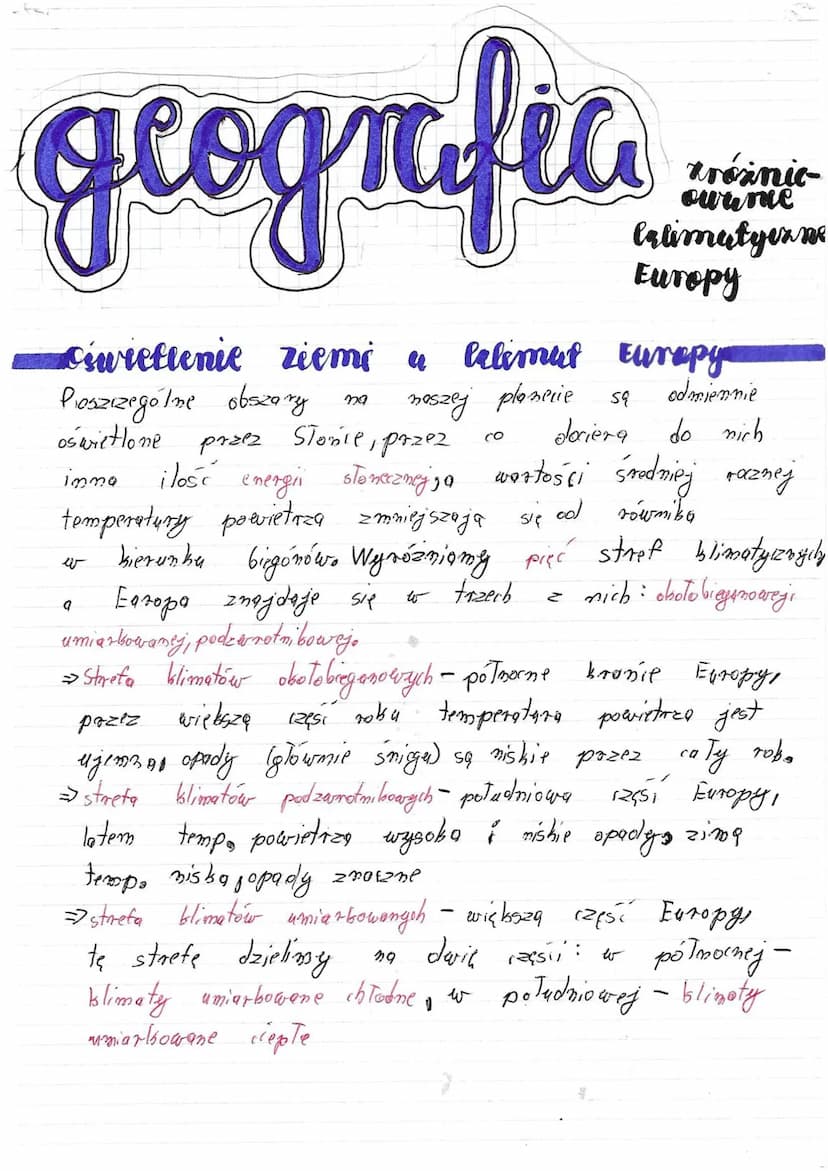 geografia
zróżnic-
owanie
klimatyczne
Europy
oświetlenie ziemi a klimat Europy
Poszczególne obszary na naszej planecie są odmiennie
oświetlone przez Słońce, przez co dociera do nich
inna ilość energii słonecznej, a wartości średniej rocznej
temperatury powietrza zmniejszają się od równika
w kierunku biegunów. Wyróżniamy pięć stref klimatycznych
a Europa znajduje się w trzech z nich: okołobiegunowej,
umiarkowanej, podzwrotnikowej.
⇒ Strefa klimatów okołobiegunowych - północne krańce Europy,
przez większą część roku temperatura powietrza jest
ujemna, opady (głównie śniegu) są niskie przez cały rok.
⇒ strefa klimatów podzwrotnikowych - południowa część Europy,
latem temp. powietrza wysoka i niskie opady, zimą
temp. niska, opady znaczne
⇒ strefa klimatów umiarkowanych - większa część Europy,
tę strefę dzielimy na dwie części: w północnej -
klimaty umiarkowane chłodne, w południowej - klimaty
umiarkowane ciepłe